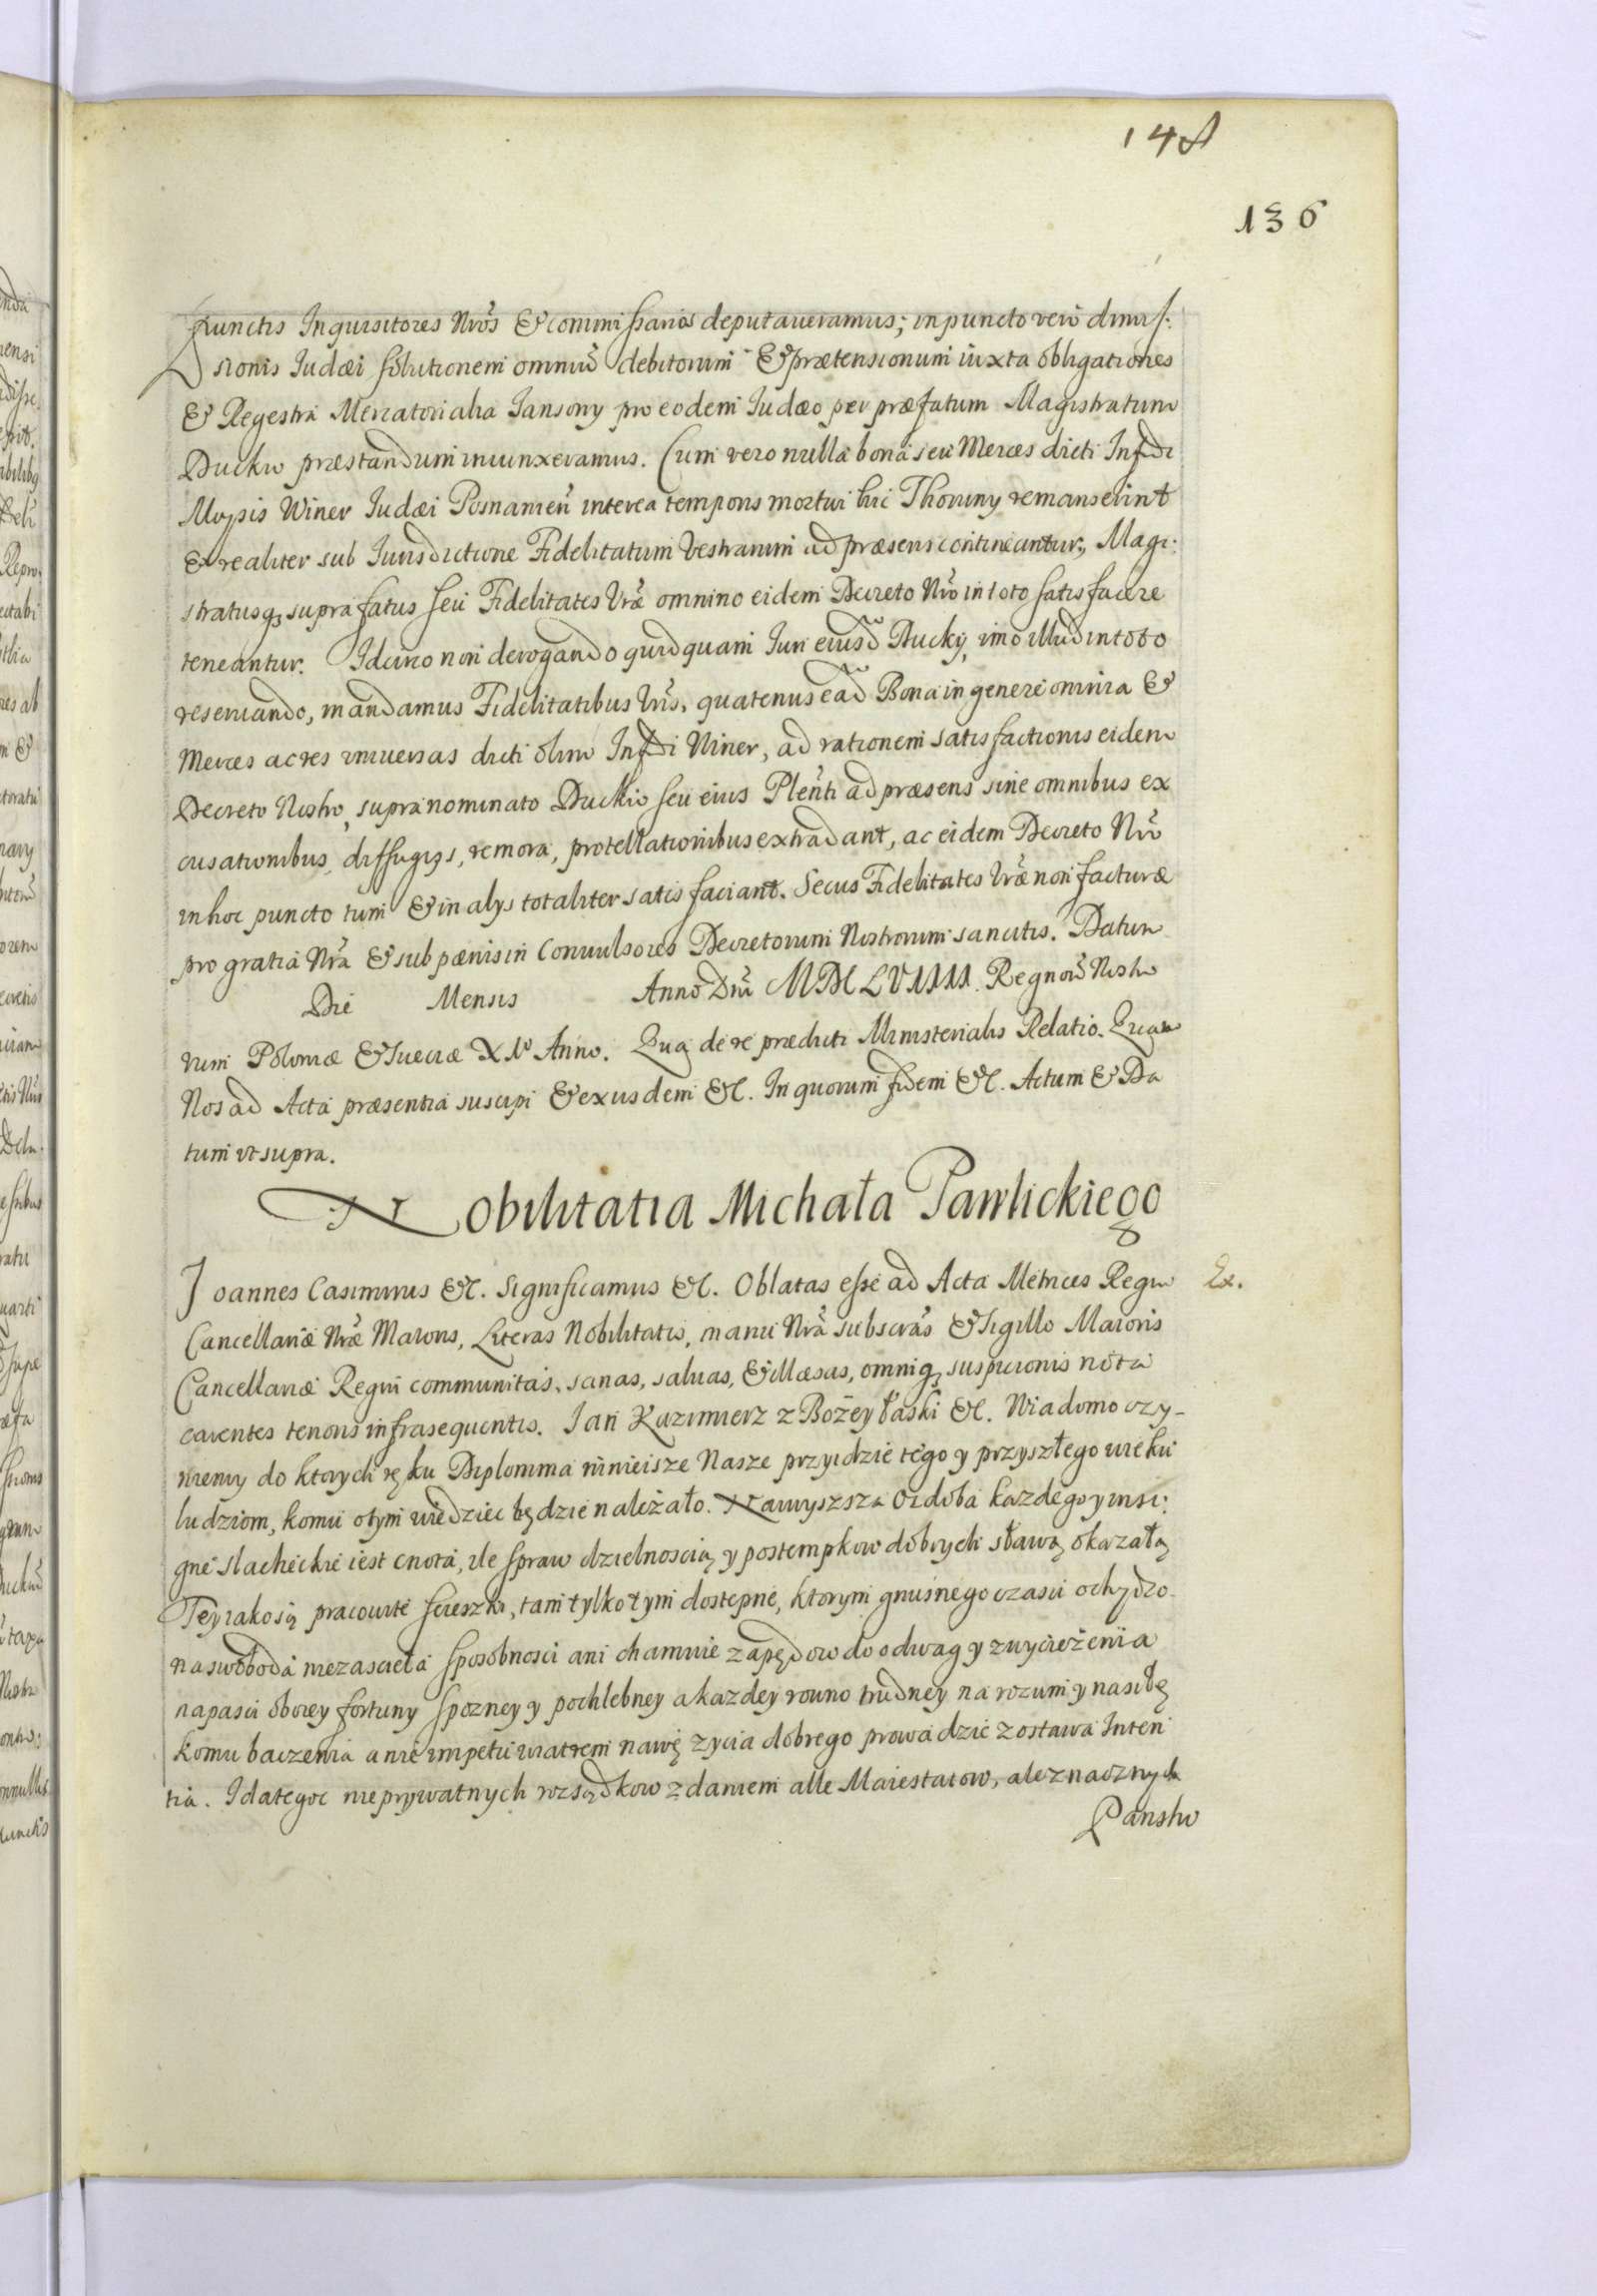 148
136
punctis Inquisitores Nrōs & commissarios deputaveramus; in puncto vero dimis:
sionis Iudæi solutionem omniū debitorum & prætensionum iuxta obligationes
& Regestra Mercatorialia Iansony pro eodem Iudæo per præfatum Magistratum
Duckio præstandum iniunxeramus. Cum vero nulla bona seu Merces dicti Infidi
Moysis Winer Iudæi Posnanien̄ interea temporis mortui hic Thoruny remanserint
& realiter sub Iurisdictione Fidelitatum Vestrarum ad præsens contineantur, Magi:
stratusq₃ supra fatus seu Fidelitates Vrǣ omnino eidem Decreto Nrō in toto satisfacere
teneantur. Idcirco non derogando quidquam Iuri eiusd̄ Ducky, imo illud in toto
reservando, mandamus Fidelitatibus Vris̄, quatenus ead̄ Bona in genere omnia &
Merces ac res universas dicti olim Infidi Winer, ad rationem satisfactionis eidem
Decreto Nostro, supra nominato Duckio seu eius Plenti̅ ad præsens sine omnibus ex
cusationibus, diffugys, remora, protellationibus extradant, ac eidem Decreto Nrō
in hoc puncto tum & in alys totaliter satis faciant. Secus Fidelitates Vrǣ non facturæ
pro gratia Nrā & sub pœnis in Convulsores Decretorum Nostrorum sancitis. Datum
Die Mensis Anno Dn̄i MDCLVIIII. Regnorū Nostro
rum Poloniæ & Sueciæ XIº Anno. Quā de re prædicti Ministerialis Relatio. Quam
Nos ad Acta præsentia suscipi & exusdem &c. In quorum fidem &c. Actum & Da
tum ut supra.
Nobilitatia Michała Pawlickiego
Ioannes Casimirus &c. Significamus &c. Oblatas esse ad Acta Metrices Regni
Ex.
Cancellariæ Nrǣ Maioris, Literas Nobilitatis, manu Nrā subscrās & Sigillo Maioris
Cancellariæ Regni communitas, sanas, salvas, & illæsas, omniq₃ suspicionis nota
carentes tenoris infrasequentis. Jan Kazimierz z Bożey łaski &c. Wiadomo czy-
niemy do ktorych ręku Diplomma ninieisze Nasze przyidzie tego y przyszłego wieku
ludziom, komu otym wiedziec będzie należało. Nawyszsza ozdoba kazdego y insi:
gne slacheckie iest cnota, ile spraw dzielnoscią y postempkow dobrych sławą okazałą
Tey iakosię pracowite scieszki, tam tylko tym dostepne, ktorym gnusnego czasu ochydzo
na swoboda niezascieła sposobnosci ani chamuie zapędow do odwagy zwycieżenia
napasci oboiey fortuny spozney y pochlebney a kazdey rowno trudney na rozum y nasiłę
komu baczenia a nie impetu wiatrem nawę zycia dobrego prowadzic zostawa Inten
tia. I dategoc nieprywatnych rozsądkow zdaniem alle Maiestatow, ale znacznych
Panstw